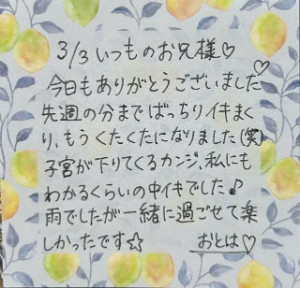 3/3 いつものお兄様♡
今日もありがとうございました♡
先週の分までばっちりイキまく
り、もうくたくたになりました(笑)
子宮が下りてくるカンジ、私にも
わかるくらいの中イキでした♪
雨でしたが一緒に過ごせて楽
しかったです☆ おとは♡